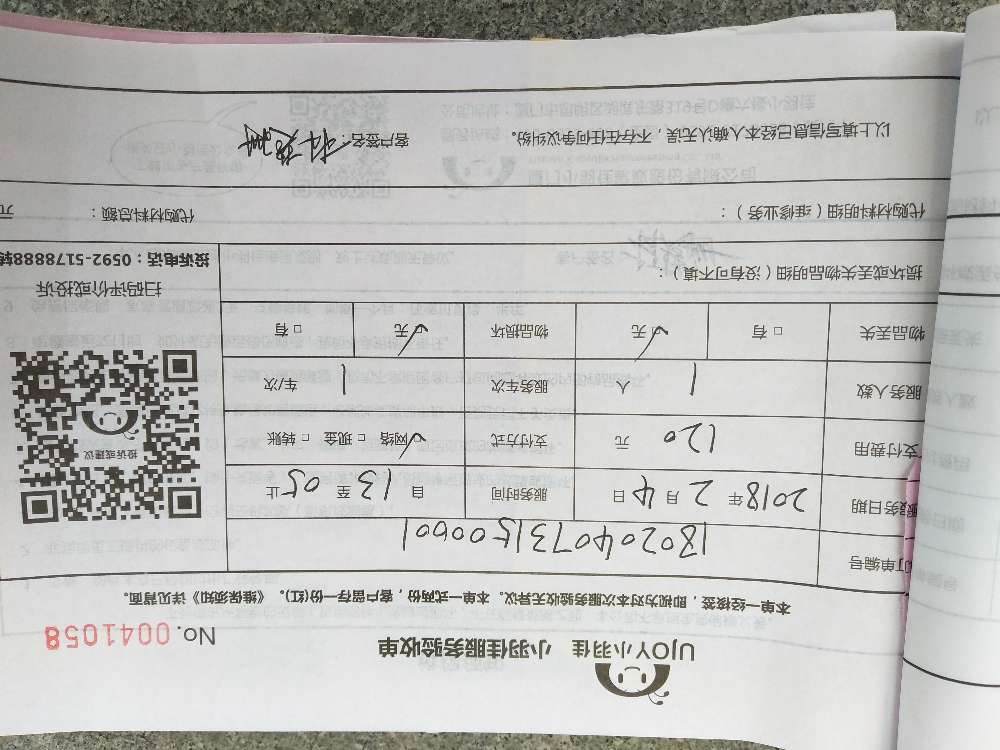 UJOY小羽佳 小羽佳服务验收单
No. 0041058
本单一经签核，即视为对本次服务验收无异议。本单一式两份，客户留存一份(红)。《维保须知》详见背面。
订单编号 180204073150001
服务日期 2018 年 2 月 4 日 服务时间 自 13 至 05 止
支付费用 120 元 支付方式 ☑ 网络 □ 现金 □ 转账
服务人数 1 人 服务车次 1 车/次
物品丢失 □ 有 ☑ 无 物品损坏 ☑ 无 □ 有
投诉或建议
扫码评价或投诉
投诉电话：0592-5178888转
损坏或丢失物品明细（没有可不填）：
代购材料明细（维修业务）： 代购材料总额： 元
以上填写信息已经本人确认无误，不存在任何争议纠纷。 客户签名：